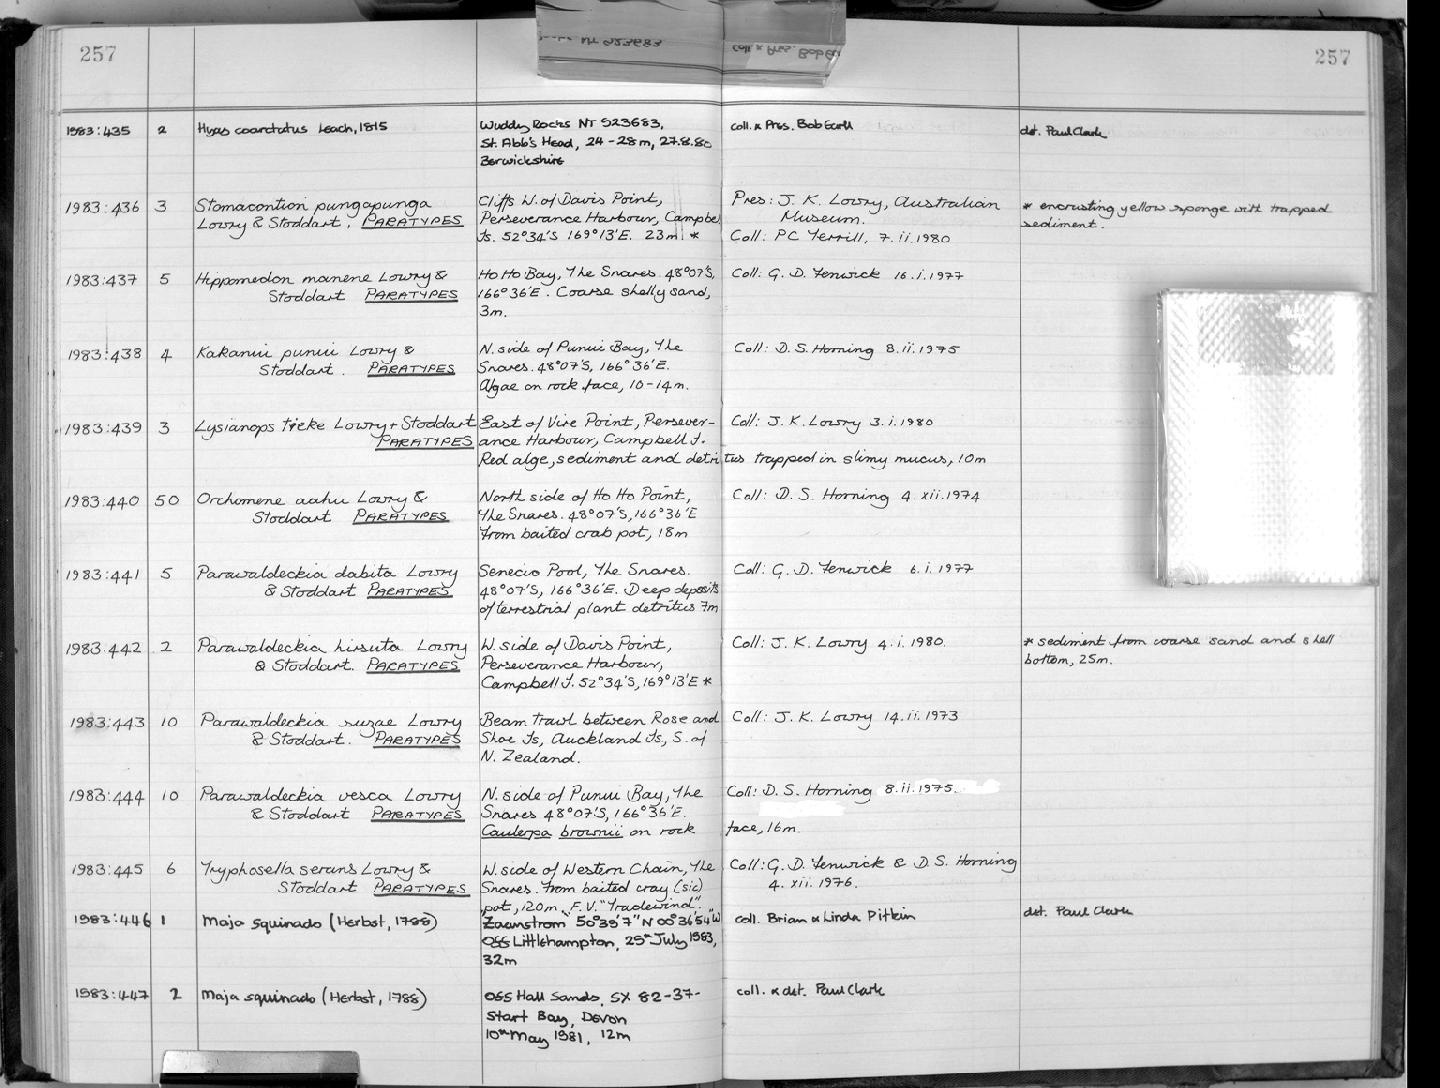 257
257
1983:435 2 Hyas coarctatus Leach, 1815 Wuddy Rocks NT 923683, coll. & Pres. Bob Earll det. Paul Clark
St. Abb's Head, 24-28m, 27.8.80
Berwickshire
1983:436 3 Stomacontion pungapunga Cliffs W. of Davis Point, Pres: J. K. Lowry, Australian * encrusting yellow sponge with trapped
Lowry & Stoddart, PARATYPES Perseverance Harbour, Campbel Museum. sediment.
Is. 52°34'S 169°13'E. 23m. * Coll: PC Terrill, 7.ii.1980
1983:437 5 Hippomedon manene Lowry & Ho Ho Bay, The Snares 48°07'S, Coll: G. D. Fenwick 16.i.1977
Stoddart PARATYPES 166°36'E. Coarse shelly sand,
3m.
1983:438 4 Kakanui punui Lowry & N. side of Punui Bay, The Coll: D. S. Horning 8.ii.1975
Stoddart. PARATYPES Snares. 48°07'S, 166°36'E.
Algae on rock face, 10-14m.
1983:439 3 Lysianops tieke Lowry + Stoddart East of Vire Point, Persever- Coll: J. K. Lowry 3.i.1980
PARATYPES ance Harbour, Campbell I.
Red alge, sediment and detritus trapped in slimy mucus, 10m
1983:440 50 Orchomene aahu Lowry & North side of Ho Ho Point, Coll: D. S. Horning 4.xii.1974
Stoddart PARATYPES The Snares. 48°07'S, 166°36'E
From baited crab pot, 18m
1983:441 5 Parawaldeckia dabita Lowry Senecio Pool, The Snares. Coll: G. D. Fenwick 6.i.1977
& Stoddart PARATYPES 48°07'S, 166°36'E. Deep deposits
of terrestrial plant detritus 7m
1983:442 2 Parawaldeckia hirsuta Lowry W. side of Davis Point, Coll: J. K. Lowry 4.i.1980. * sediment from coarse sand and shell
& Stoddart. PARATYPES Perseverance Harbour, bottom, 25m.
Campbell I. 52°34'S, 169°13'E *
1983:443 10 Parawaldeckia suzae Lowry Beam trawl between Rose and Coll: J. K. Lowry 14.ii.1973
& Stoddart. PARATYPES Shoe Is, Auckland Is, S. of
N. Zealand.
1983:444 10 Parawaldeckia vesca Lowry N. side of Punui Bay, The Coll: D. S. Horning 8.ii.1975.
& Stoddart PARATYPES Snares 48°07'S, 166°36'E.
Caulerpa brownii on rock face, 16m.
1983:445 6 Tryphosella serans Lowry & W. side of Western Chain, The Coll: G. D. Fenwick & D. S. Horning
Stoddart PARATYPES Snares. From baited cray (sic) 4.xii.1976.
pot, 120m F.V. "Tradewind".
1983:446 1 Maja squinado (Herbst, 1788) Zaanstrom 50°39'7"N 00°36'54"W coll. Brian & Linda Pitkin det. Paul Clark
Off Littlehampton, 25th July 1983,
32m
1983:447 2 Maja squinado (Herbst, 1788) Off Hall Sands, SX 82-37- coll. & det. Paul Clark
Start Bay, Devon
10th May 1981, 12m